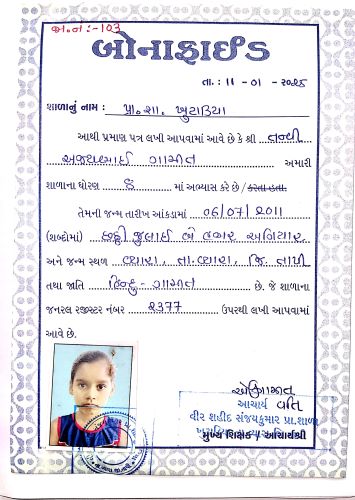 જા.નં :- 103
બોનાફાઈડ
તા. : 11 - 01 - ૨૦૨5
શાળાનું નામ : પ્રા. શા. ખુટાડિયા
આથી પ્રમાણ પત્ર લખી આપવામાં આવે છે કે શ્રી તન્વી
અજયભાઈ ગામીત અમારી
શાળાના ધોરણ 8 માં અભ્યાસ કરે છે / કરતા હતા.
તેમની જન્મ તારીખ આંકડામાં 06/07/2011
(શબ્દોમાં) છઠ્ઠી જુલાઈ બે હજાર અગિયાર
અને જન્મ સ્થળ વ્યારા, તા. વ્યારા, જિ. તાપી
તથા જાતિ હિન્દુ - ગામીત છે. જે શાળાના
જનરલ રજીસ્ટર નંબર 2377 ઉપરથી લખી આપવામાં
આવે છે.
આચાર્ય વતિ
વીર શહીદ સંજયકુમાર પ્રા.શાળા
મુખ્ય શિક્ષક / આચાર્યશ્રી